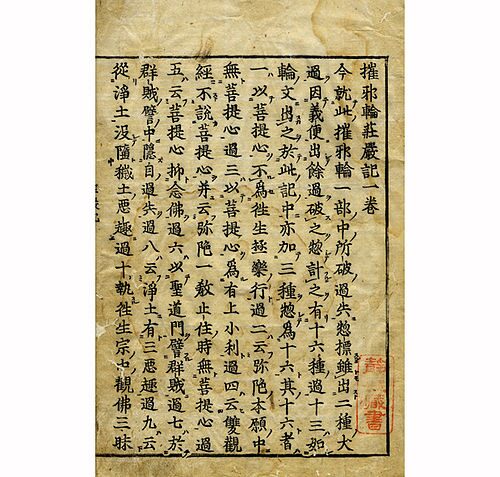 摧邪輪莊嚴記一卷
今就此摧邪輪一部中所破過失惣標雖出二種大
過因義便出餘過破之惣計之有十六種過十三如
輪文出之於此記中亦加三種惣為十六其十六者
一以菩提心不為徃生極樂行過二云弥陁本願中
無菩提心過三以菩提心為有上小利過四云雙觀
經不說菩提心并云弥陁一教止住時無菩提心過
五云菩提心抑念佛過六以聖道門譬群賊過七於
群賊譬中隱自過失過八云淨土有三惡趣過九云
從淨土沒隨穢土惡趣過十執徃生宗中觀佛三昧